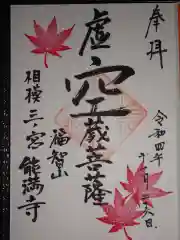 奉拝
令和四年十一月二八日
虚空蔵菩薩
福智山
相模三ノ宮
能満寺